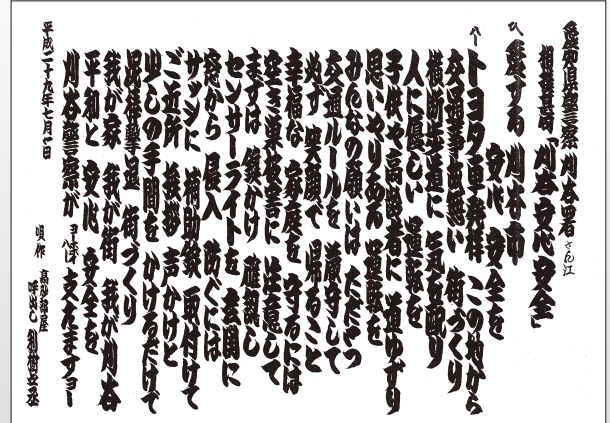 愛知県警察 刈谷署さん江
相撲甚句「刈谷安心安全」
愛する 刈谷市
安心 安全を
トヨタ車発祥 この地から
交通事故無い 街づくり
横断歩道に 気を配り
人に優しい 運転を
子供や高齢者に 道ゆずり
思いやりある 運転を
みんなの願いは ただ一つ
交通ルールを 厳守して
必ず 笑顔で 帰ること
幸福な 家庭を 守るには
空き巣被害に 注意して
まずは 鍵かけ 確認し
センサーライトを 玄関に
窓から 侵入 防ぐには
サッシに 補助錠 取付けて
ご近所 挨拶 声かけと
少しの手間を かけるだけで
撃退 街づくり
我が家 我が街 我が刈谷
平和と 安心 安全を
刈谷警察が 支えますヨー
平成二十九年七月吉日
唄 作 高砂部屋
呼出し 利樹之丞